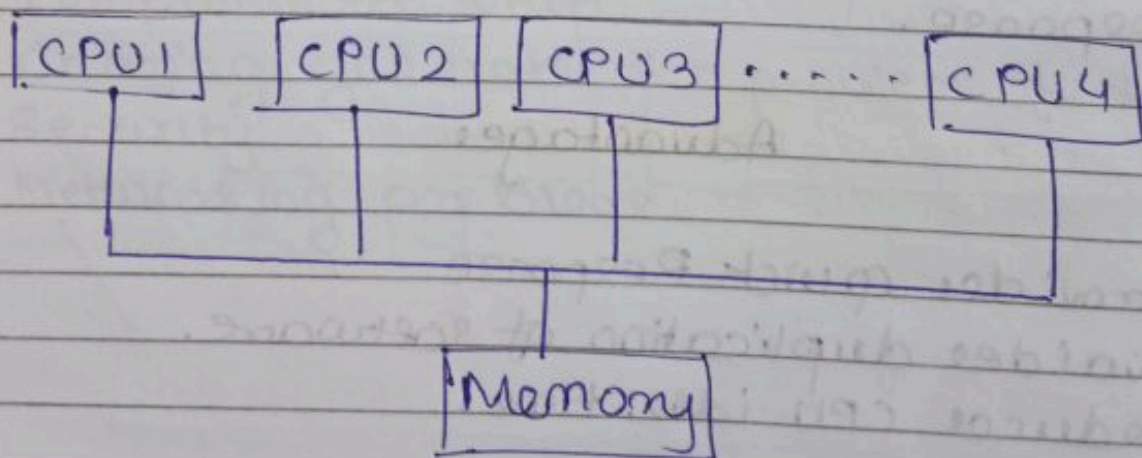 CPU1 CPU2 CPU3 ...... CPU4
Memory